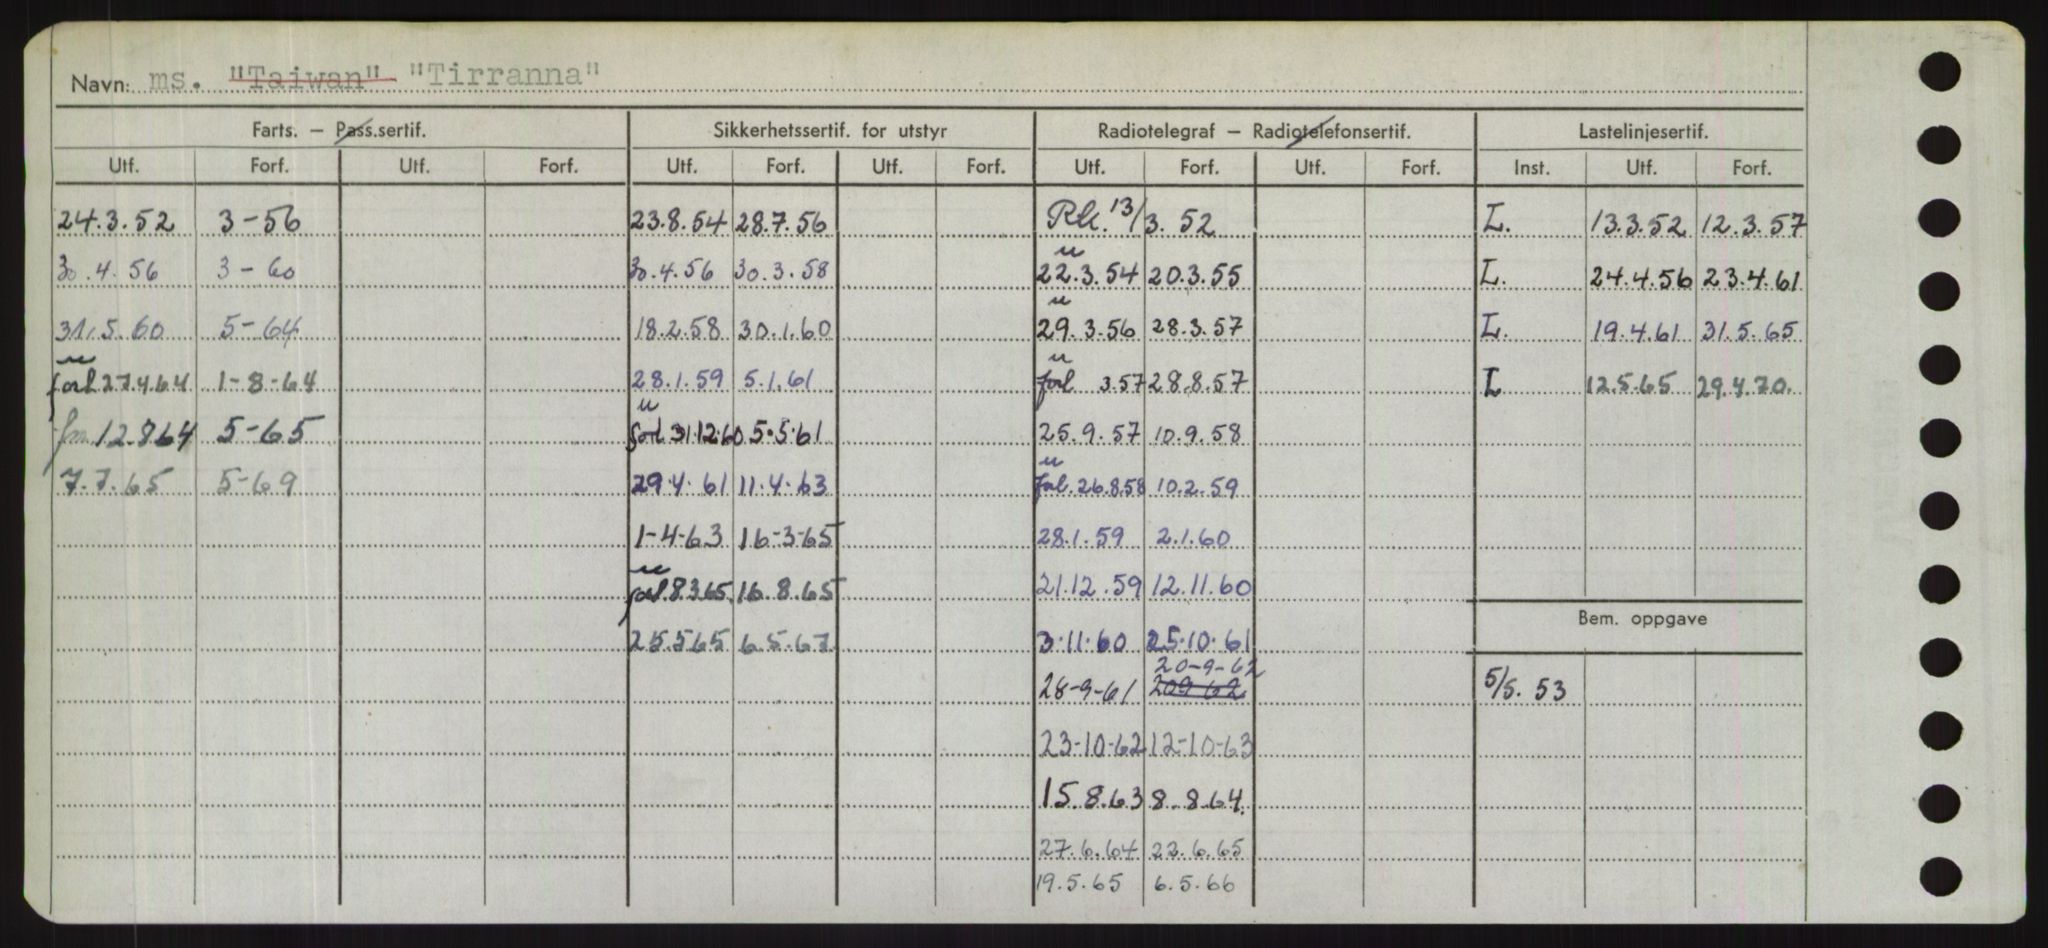 Navn: ms. "Taiwan" "Tirranna"
Farts. — Pass.sertif. Sikkerhetssertif. for utstyr Radiotelegraf — Radiotelefonsertif. Lastelinjesertif.
Utf. Forf. Utf. Forf. Utf. Forf. Utf. Forf. Utf. Forf. Utf. Forf. Inst. Utf. Forf.
24.3.52 3-56 23.8.54 28.7.56 13/3. 52 L. 13.3.52 12.3.57
30.4.56 3-60 30.4.56 30.3.58 22.3.54 20.3.55 L. 24.4.56 23.4.61
31.5.60 5-64 18.2.58 30.1.60 29.3.56 28.3.57 L. 19.4.61 31.5.65
forl 27.4.64 1-8-64 28.1.59 5.1.61 forl 3.57 28.8.57 L 12.5.65 29.4.70.
12.8.64 5-65 forl 31.12.60 5.5.61 25.9.57 10.9.58
7.7.65 5-69 29.4.61 11.4.63 forl. 26.8.58 10.2.59
1-4-63 16-3-65 28.1.59 2.1.60
forl. 8.3.65 16.8.65 21.12.59 12.11.60
Bem. oppgave
25.5.65 6.5.67 3.11.60 25.10.61
20-9-62
28-9-61 20 9 62 5/5. 53
23-10-62 12-10-63
15.8.63 8.8.64.
27.6.64 22.6.65
19.5.65 6.5.66